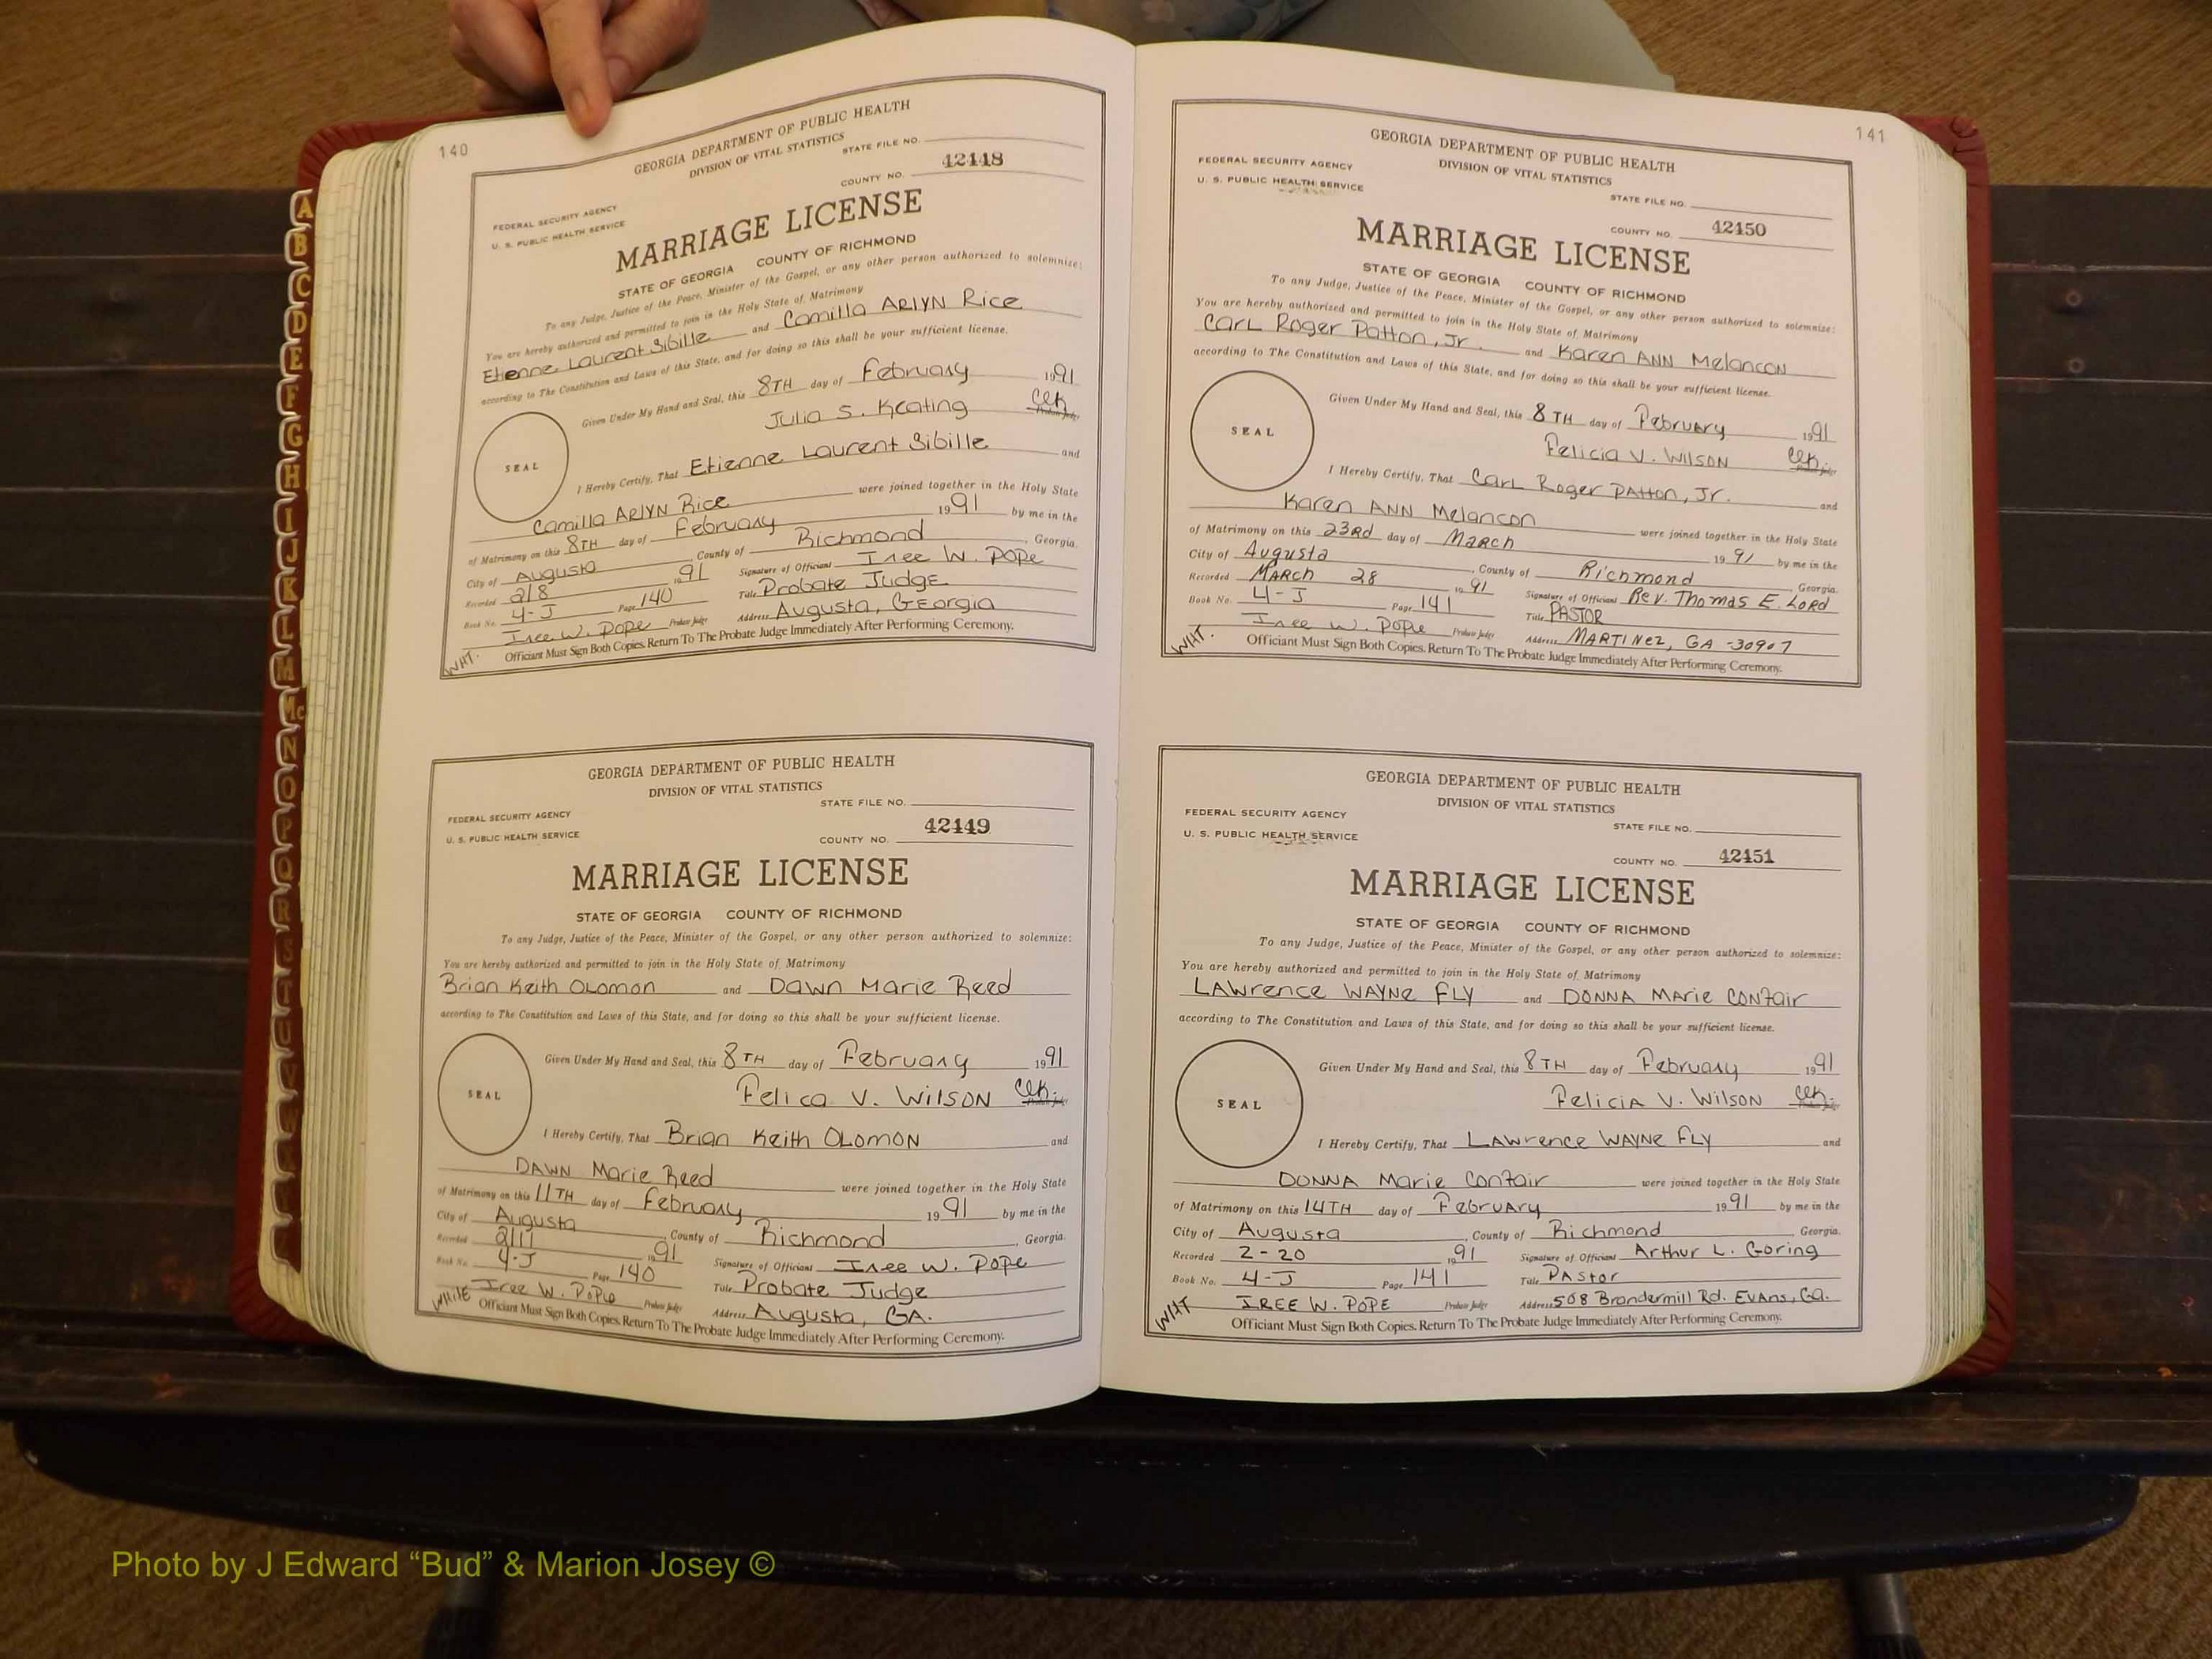 140
GEORGIA DEPARTMENT OF PUBLIC HEALTH
DIVISION OF VITAL STATISTICS
STATE FILE NO.
FEDERAL SECURITY AGENCY
U. S. PUBLIC HEALTH SERVICE
COUNTY NO. 42448
MARRIAGE LICENSE
STATE OF GEORGIA COUNTY OF RICHMOND
To any Judge, Justice of the Peace, Minister of the Gospel, or any other person authorized to solemnize:
You are hereby authorized and permitted to join in the Holy State of Matrimony
Etienne Laurent Sibille and Camilla ARlYN Rice
according to The Constitution and Laws of this State, and for doing so this shall be your sufficient license.
Given Under My Hand and Seal, this 8TH day of February 1991
Julia S. Keating Clk. Probate Judge
SEAL
I Hereby Certify, That Etienne Laurent Sibille and
Camilla ARlYN Rice were joined together in the Holy State
of Matrimony on this 8TH day of February 1991 by me in the
City of Augusta County of Richmond, Georgia.
Recorded 2/8 1991 Signature of Officiant Iree W. Pope
Book No. 4-J Page 140 Title Probate Judge
Iree W. Pope Probate Judge Address Augusta, Georgia
WHT. Officiant Must Sign Both Copies. Return To The Probate Judge Immediately After Performing Ceremony.
GEORGIA DEPARTMENT OF PUBLIC HEALTH
DIVISION OF VITAL STATISTICS
STATE FILE NO.
FEDERAL SECURITY AGENCY
U. S. PUBLIC HEALTH SERVICE
COUNTY NO. 42449
MARRIAGE LICENSE
STATE OF GEORGIA COUNTY OF RICHMOND
To any Judge, Justice of the Peace, Minister of the Gospel, or any other person authorized to solemnize:
You are hereby authorized and permitted to join in the Holy State of Matrimony
Brian Keith OLomon and DAWN Marie Reed
according to The Constitution and Laws of this State, and for doing so this shall be your sufficient license.
Given Under My Hand and Seal, this 8TH day of February 1991
Felica V. WilSON Clk. Probate Judge
SEAL
I Hereby Certify, That Brian Keith OLomON and
DAWN Marie Reed were joined together in the Holy State
of Matrimony on this 11TH day of February 1991 by me in the
City of Augusta, County of Richmond, Georgia.
Recorded 2/11 1991 Signature of Officiant Iree W. Pope
Book No. 4-J Page 140 Title Probate Judge
Iree W. Pope Probate Judge Address Augusta, GA.
WHITE Officiant Must Sign Both Copies. Return To The Probate Judge Immediately After Performing Ceremony.
141
GEORGIA DEPARTMENT OF PUBLIC HEALTH
DIVISION OF VITAL STATISTICS
FEDERAL SECURITY AGENCY
U. S. PUBLIC HEALTH SERVICE
STATE FILE NO.
COUNTY NO. 42450
MARRIAGE LICENSE
STATE OF GEORGIA COUNTY OF RICHMOND
To any Judge, Justice of the Peace, Minister of the Gospel, or any other person authorized to solemnize:
You are hereby authorized and permitted to join in the Holy State of Matrimony
CarL Roger Patton, Jr. and Karen ANN Melancon
according to The Constitution and Laws of this State, and for doing so this shall be your sufficient license.
Given Under My Hand and Seal, this 8TH day of February 1991
Felicia V. WilSON Clk. Probate Judge
SEAL
I Hereby Certify, That CarL Roger PAtton, Jr. and
Karen ANN Melancon were joined together in the Holy State
of Matrimony on this 23Rd day of March 1991 by me in the
City of Augusta, County of Richmond, Georgia.
Recorded MARCH 28 1991 Signature of Officiant Rev. Thomas E. Lord
Book No. 4-J Page 141 Title PASTOR
Iree W. Pope Probate Judge Address MARTINez, GA -30907
WHT. Officiant Must Sign Both Copies. Return To The Probate Judge Immediately After Performing Ceremony.
GEORGIA DEPARTMENT OF PUBLIC HEALTH
DIVISION OF VITAL STATISTICS
FEDERAL SECURITY AGENCY
U. S. PUBLIC HEALTH SERVICE
STATE FILE NO.
COUNTY NO. 42451
MARRIAGE LICENSE
STATE OF GEORGIA COUNTY OF RICHMOND
To any Judge, Justice of the Peace, Minister of the Gospel, or any other person authorized to solemnize:
You are hereby authorized and permitted to join in the Holy State of Matrimony
LAWrence WAYNe FLY and DONNA MArie CONFair
according to The Constitution and Laws of this State, and for doing so this shall be your sufficient license.
Given Under My Hand and Seal, this 8TH day of February 1991
FeliciA V. WilSON Clk. Probate Judge
SEAL
I Hereby Certify, That LAWrence WAYNe FLY and
DONNA Marie ConFair were joined together in the Holy State
of Matrimony on this 14TH day of FebruAry 1991 by me in the
City of Augusta, County of Richmond, Georgia.
Recorded 2-20 1991 Signature of Officiant Arthur L. Goring
Book No. 4-J Page 141 Title PAstor
IREE W. POPE Probate Judge Address 508 Brandermill Rd. Evans, Ga.
WHT Officiant Must Sign Both Copies. Return To The Probate Judge Immediately After Performing Ceremony.
A
B
C
D
E
F
G
H
I
J
K
L
M
Mc
N
O
P
Q
R
S
T
U
V
Photo by J Edward “Bud” & Marion Josey ©